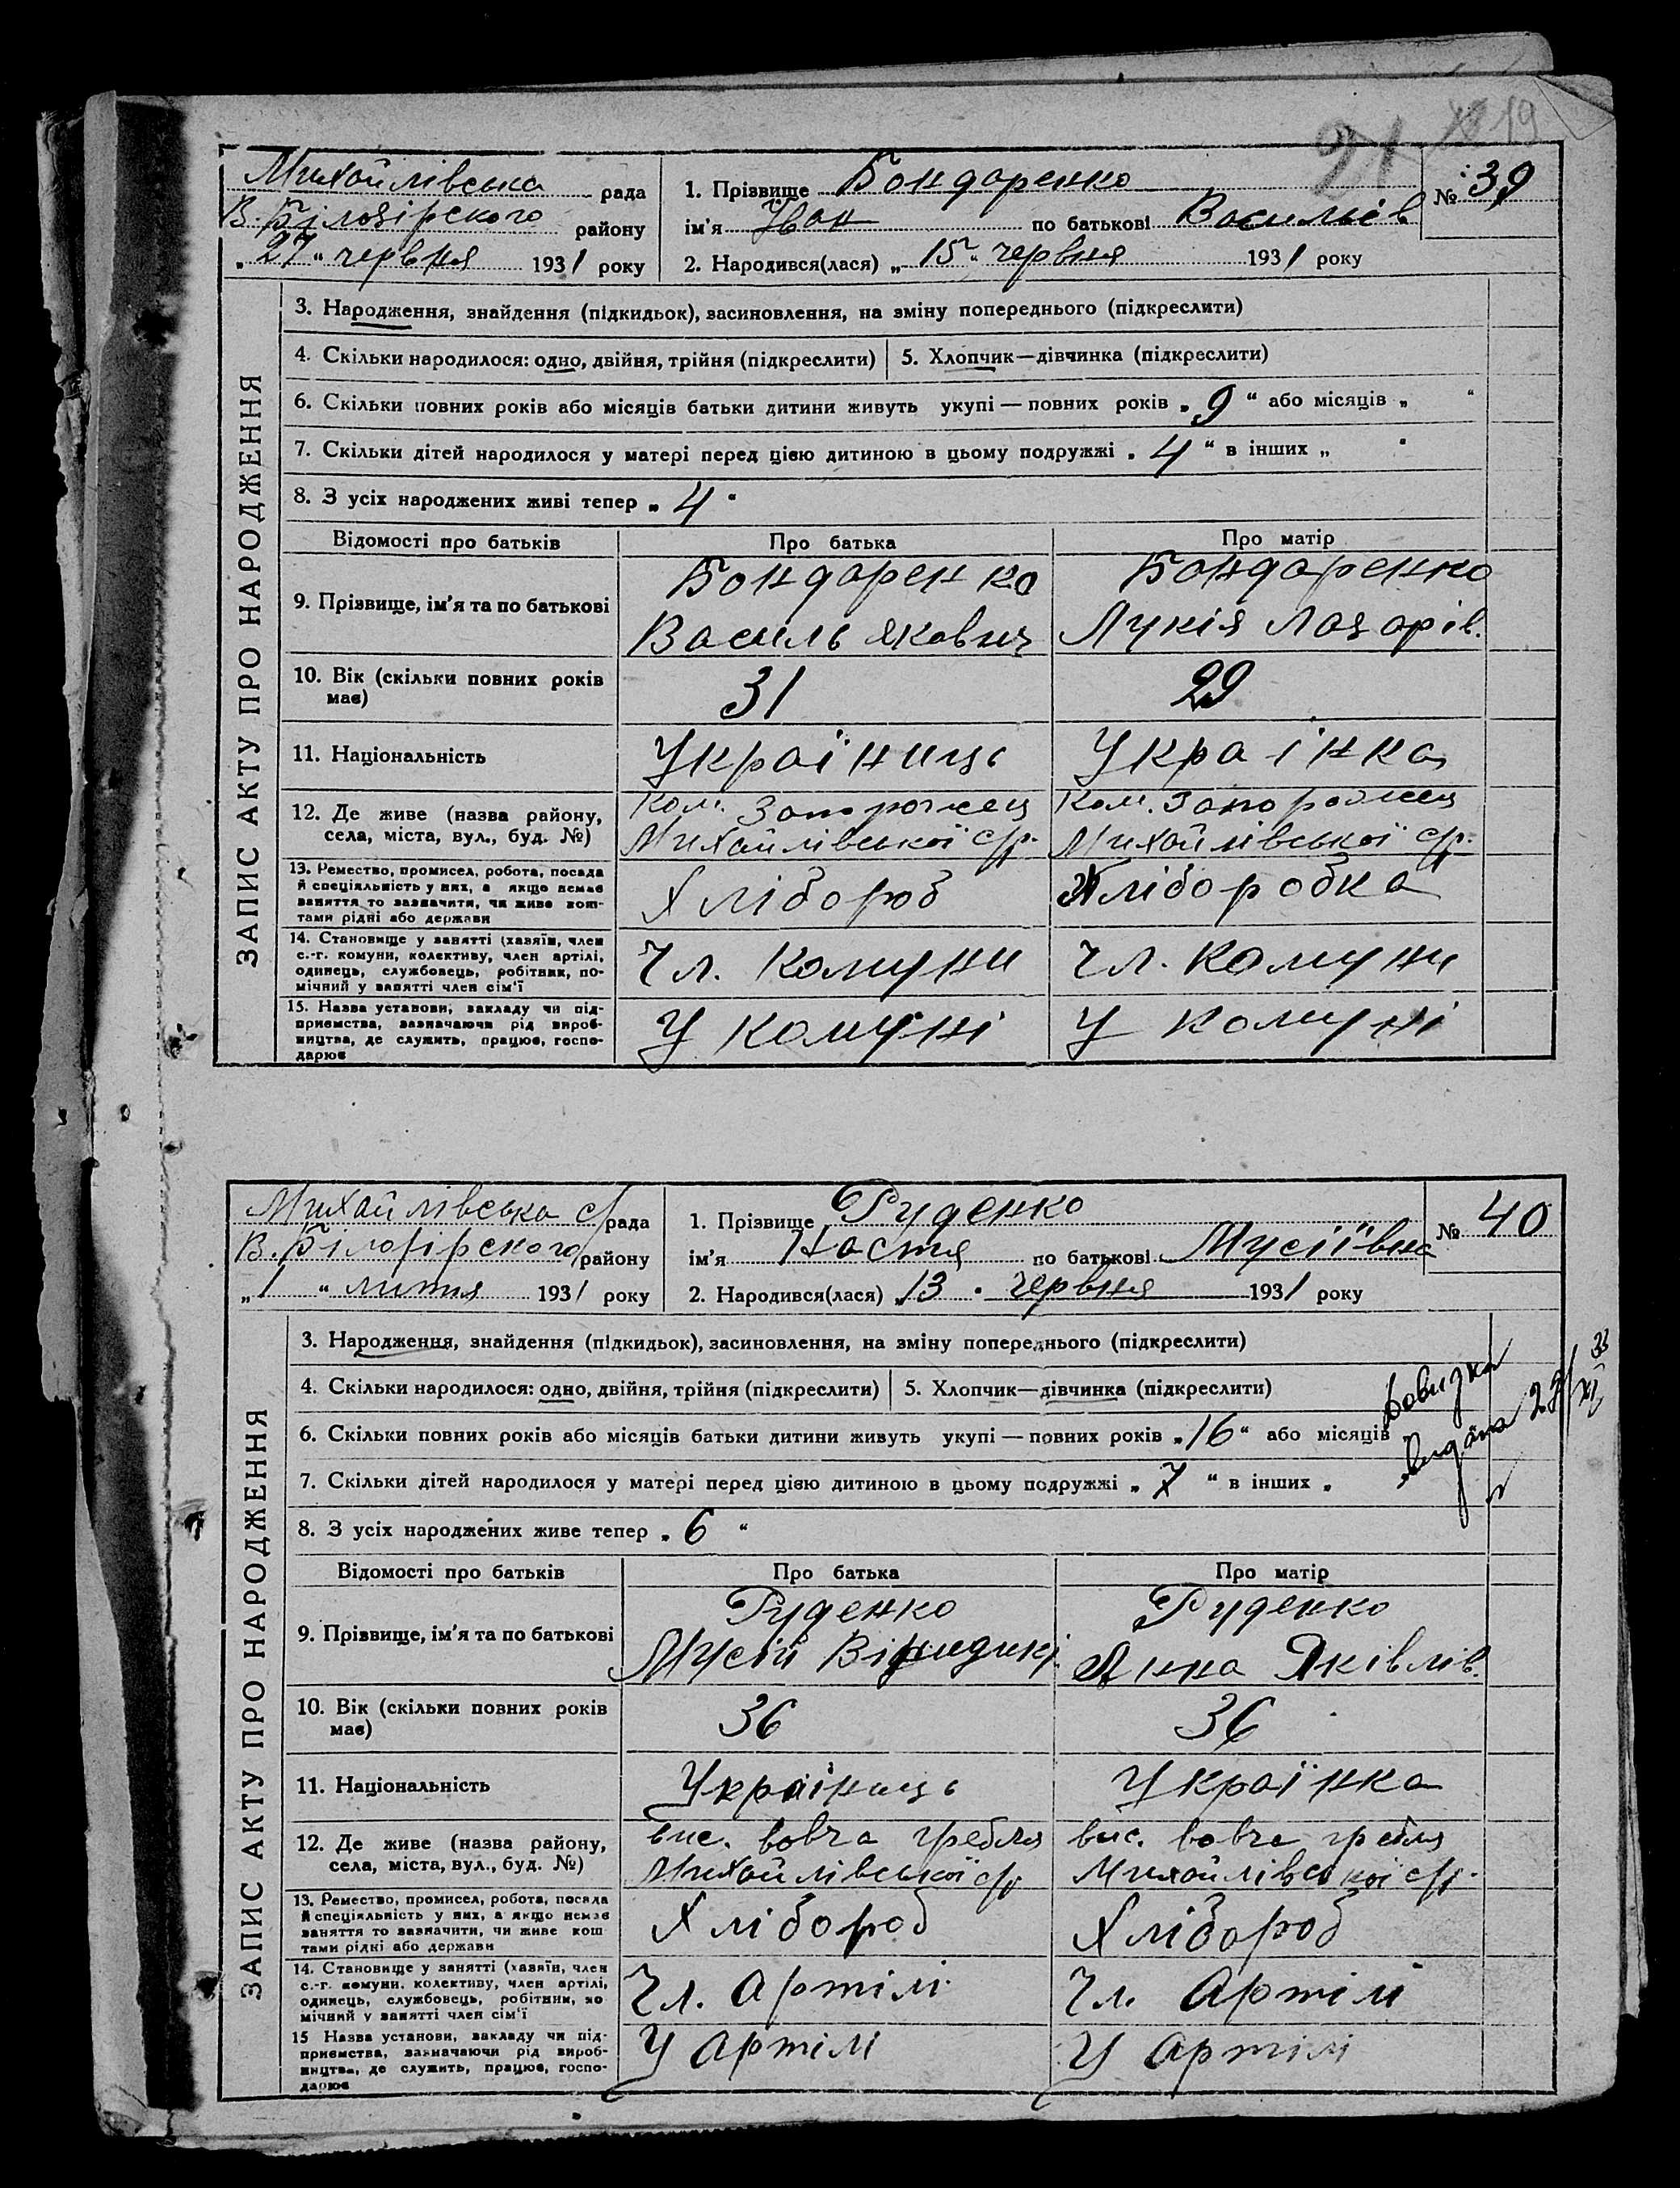 21 19
Михайлівська рада
В. Білозірского району
„27“ червня 1931 року
1. Прізвище Бондаренко
ім'я Іван по батькові Васильів
2. Народився(лася) „15“ червня 1931 року
№ 39
ЗАПИС АКТУ ПРО НАРОДЖЕННЯ
3. Народження, знайдення (підкидьок), засиновлення, на зміну попереднього (підкреслити)
4. Скільки народилося: одно, двійня, трійня (підкреслити) 5. Хлопчик—дівчинка (підкреслити)
6. Скільки повних років або місяців батьки дитини живуть укупі — повних років „9“ або місяців „ “
7. Скільки дітей народилося у матері перед цією дитиною в цьому подружжі „4“ в інших „ “
8. З усіх народжених живі тепер „4“
Відомості про батьків Про батька Про матір
9. Прізвище, ім'я та по батькові
Бондаренко
Василь Якович
Бондаренко
Лукія Лазарів.
10. Вік (скільки повних років
має)
31 29
11. Національність Україниць Українка
12. Де живе (назва району,
села, міста, вул., буд. №)
Ком. Запорожець
Михайлівської с/р.
Ком. Запорожець
Михайлівської с/р.
13. Ремество, промисел, робота, посада
й спеціяльність у них, а якщо немає
заняття то зазначити, чи живе кош-
тами рідні або держави
Хлібороб Хліборобка
14. Становище у занятті (хазяїн, член
с.-г. комуни, колективу, член артілі,
одинець, службовець, робітник, по-
мічний у занятті член сім'ї
Чл. Комуни Чл. Комуни
15. Назва установи, закладу чи під-
приємства, зазначаючи рід вироб-
ництва, де служить, працює, госпо-
дарює
У комуні У комуні
Михайлівська с/рада
В. Білозірского району
„1“ липня 1931 року
1. Прізвище Руденко
ім'я Настя по батькові Мусіївна
2. Народився(лася) „13“ червня 1931 року
№ 40
ЗАПИС АКТУ ПРО НАРОДЖЕННЯ
3. Народження, знайдення (підкидьок), засиновлення, на зміну попереднього (підкреслити)
4. Скільки народилося: одно, двійня, трійня (підкреслити) 5. Хлопчик—дівчинка (підкреслити)
6. Скільки повних років або місяців батьки дитини живуть укупі — повних років „16“ або місяців
7. Скільки дітей народилося у матері перед цією дитиною в цьому подружжі „7“ в інших „
8. З усіх народжених живе тепер „6“
Довизка
видана
Відомості про батьків Про батька Про матір
9. Прізвище, ім'я та по батькові
Руденко
Мусій
Руденко
Анна Яківлів.
10. Вік (скільки повних років
має)
36 36
11. Національність Українець Українка
12. Де живе (назва району,
села, міста, вул., буд. №)
вис. вовча гребля
Михайлівської с/р
вис. вовча гребля
Михайлівської с/р.
13. Ремество, промисел, робота, посада
й спеціяльність у них, а якщо немає
заняття то зазначити, чи живе кош
тами рідні або держави
Хлібороб Хлібороб
14. Становище у занятті (хазяїн, член
с.-г. комуни, колективу, член артілі,
одинець, службовець, робітник, по
мічний у занятті член сім'ї
Чл. Артілі Чл. Артілі
15 Назва установи, закладу чи під-
приємства, зазначаючи рід вироб-
ництва, де служить, працює, госпо-
дарює
У Артілі У Артілі